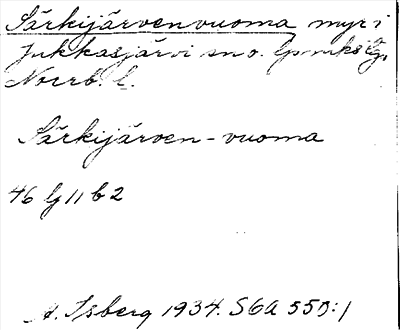 Särkijärvenvuoma myr i
Jukkasjärvi sn o. lpmks lg,
Norrb. l.
Särkijärven-vuoma
46 lg 11 b 2
A. Isberg 1934. SGA 55D:1